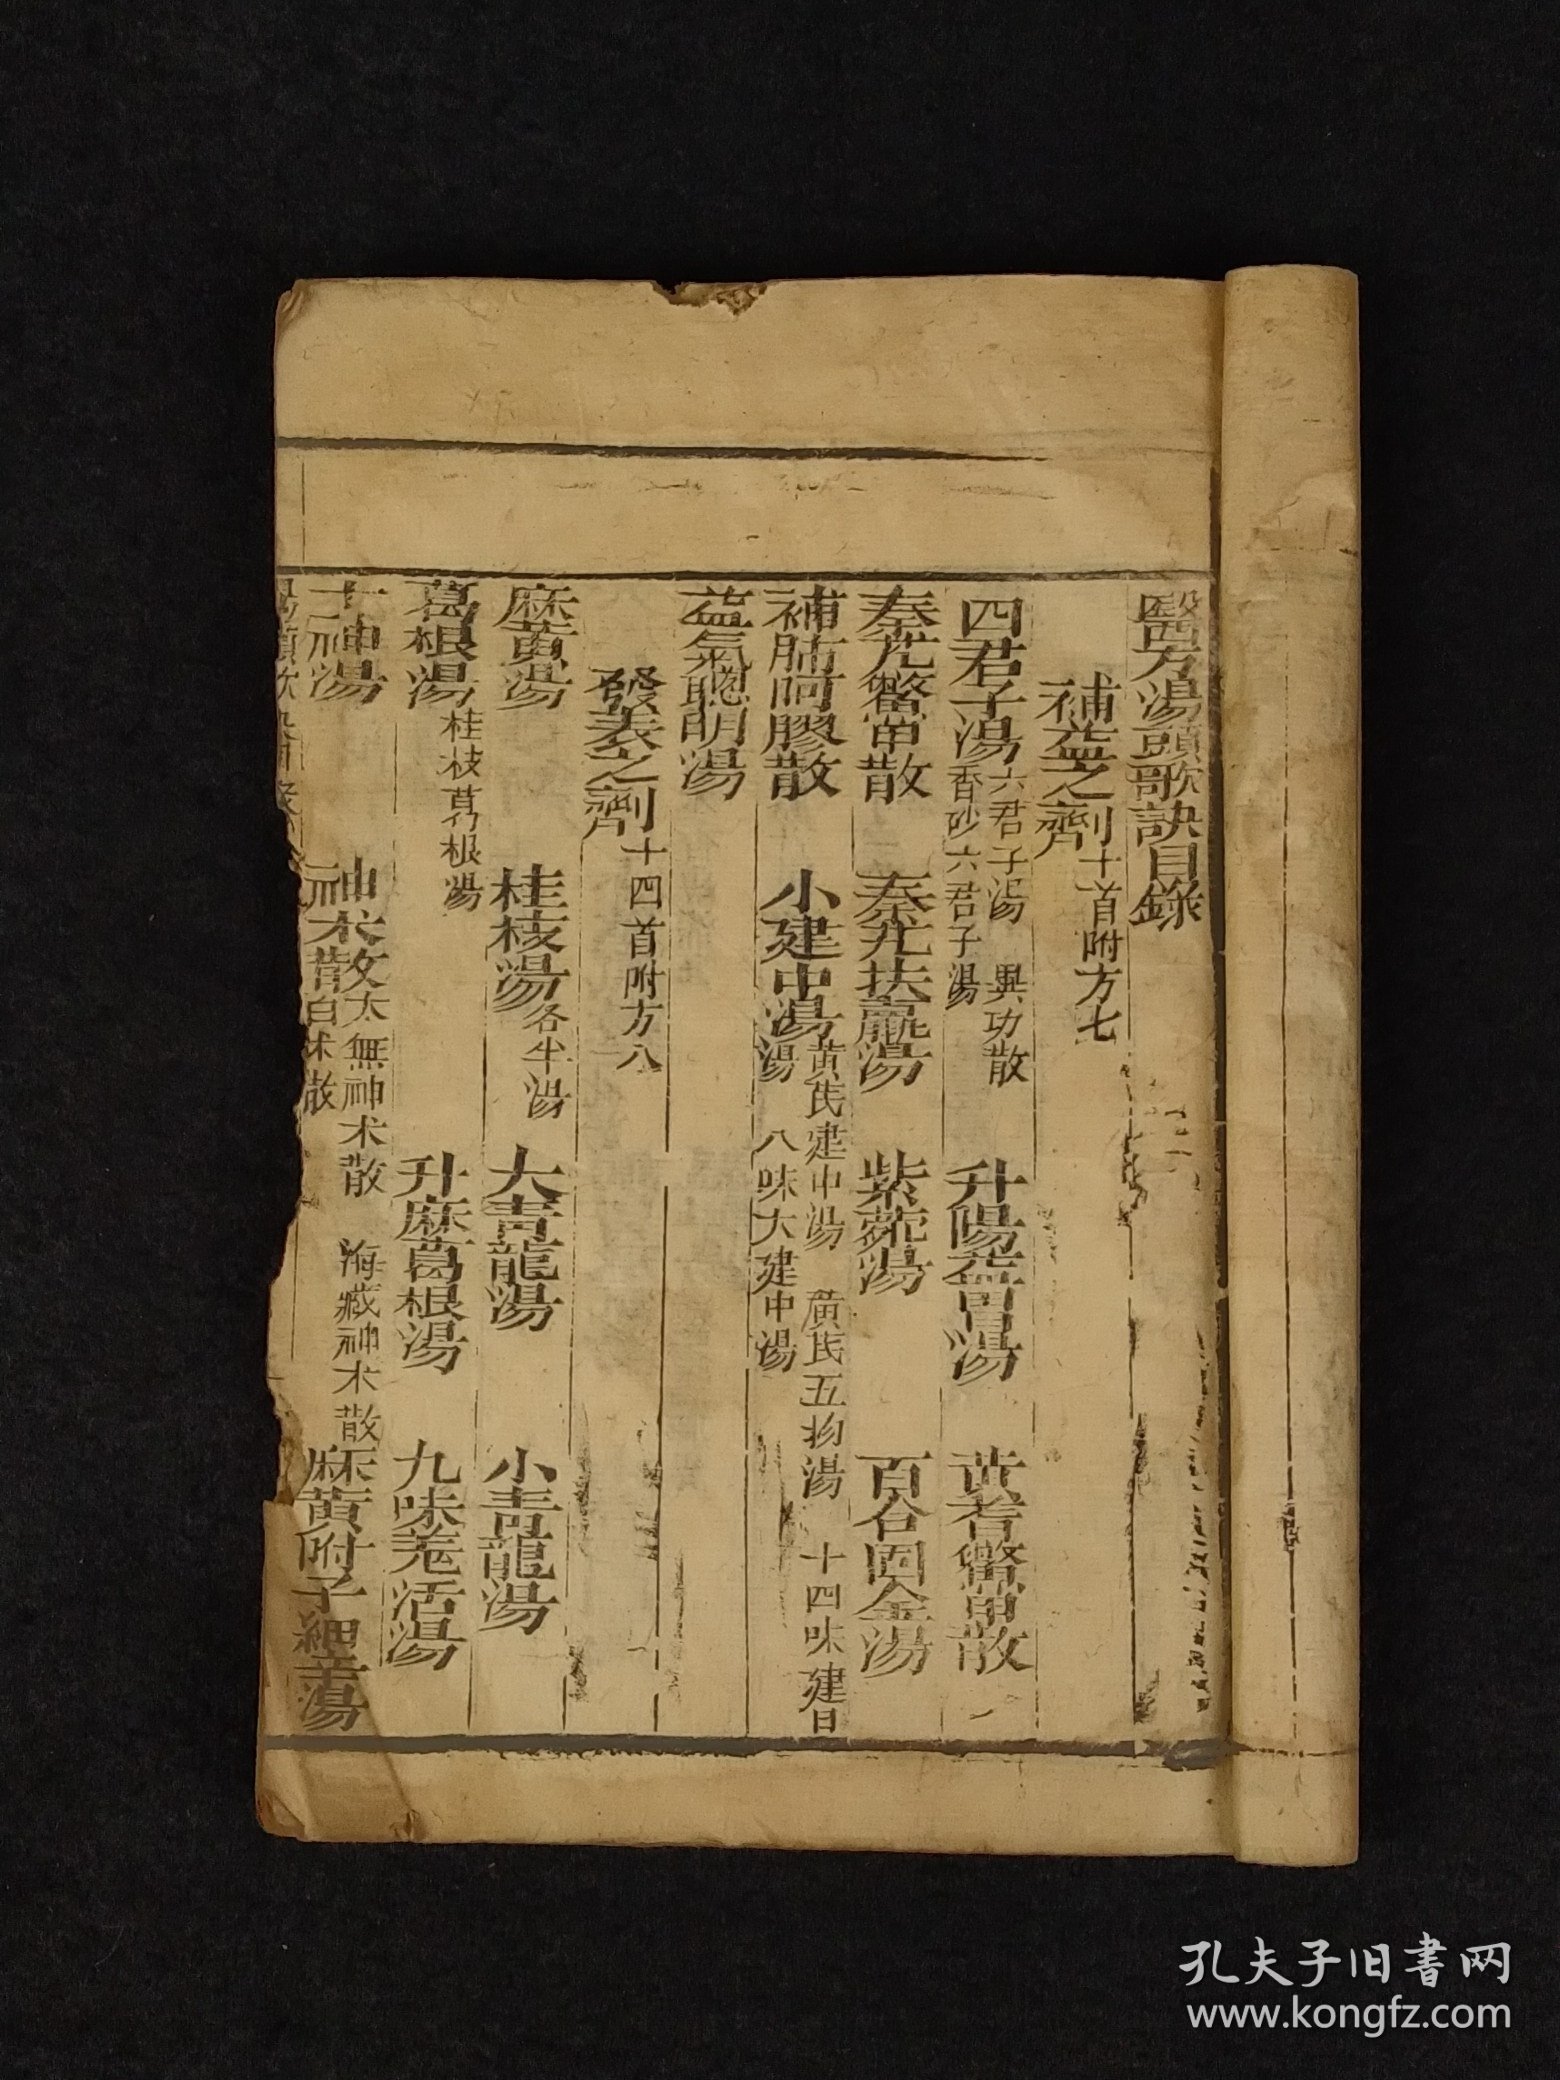 醫方湯頭歌訣目錄
補益之劑十首附方七
四君子湯 六君子湯 異功散 香砂六君子湯 升陽益胃湯 黃耆鱉甲散
秦艽鱉甲散 秦艽扶羸湯 紫菀湯 百合固金湯
補肺阿膠散 小建中湯 黃芪建中湯 黃芪五物湯 十四味建中湯 八味大建中湯
益氣聰明湯
發表之劑十四首附方八
麻黃湯 桂枝湯 各半湯 大青龍湯 小青龍湯
葛根湯 桂枝葛根湯 升麻葛根湯 九味羌活湯
十神湯 神朮散 太無神朮散 海藏神朮散 白朮散 麻黃附子細辛湯
湯頭歌訣目錄
孔夫子旧书网
www.kongfz.com